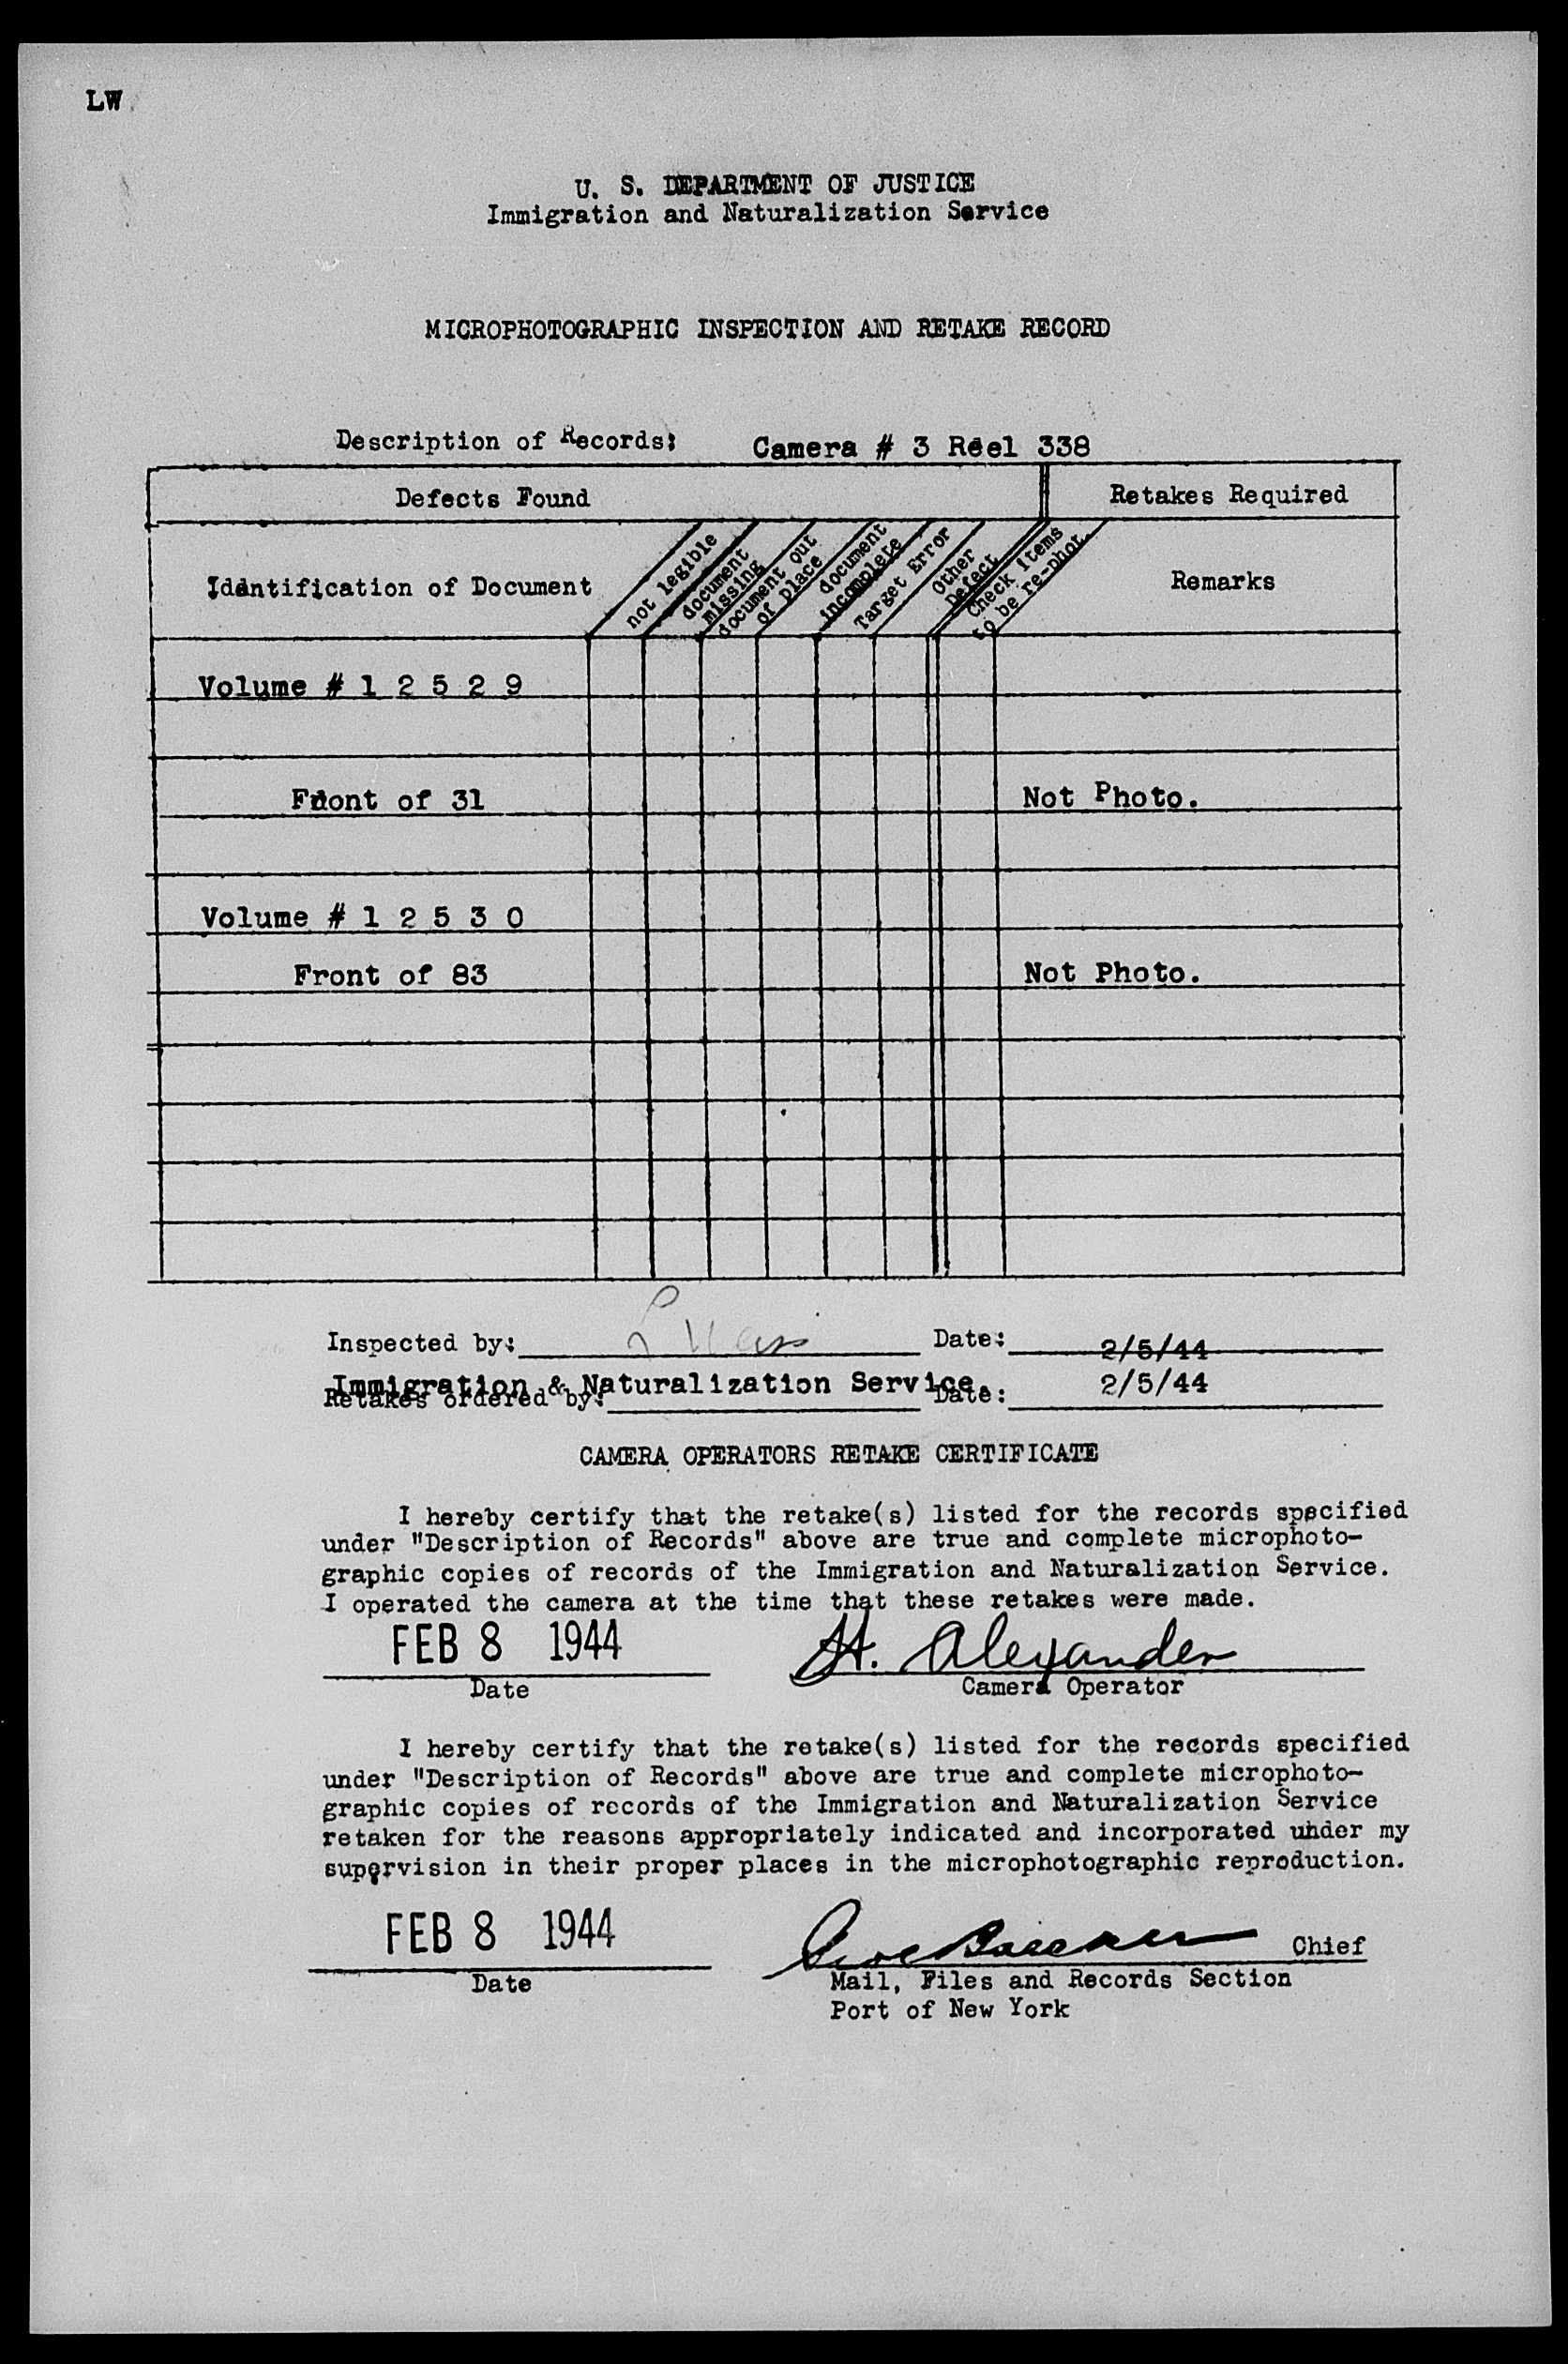 LW
U. S. DEPARTMENT OF JUSTICE
Immigration and Naturalization Service
MICROPHOTOGRAPHIC INSPECTION AND RETAKE RECORD
Description of Records: Camera # 3 Reel 338
Defects Found Retakes Required
Identification of Document
not legible
document
missing
document out
of place
document
incomplete
Target Error
Other
Defect
Check items
to be re-phot.
Remarks
Volume # 1 2 5 2 9
Front of 31 Not Photo.
Volume # 1 2 5 3 0
Front of 83 Not Photo.
Inspected by: Date: 2/5/44
Immigration & Naturalization Service.
Retakes ordered by: Date: 2/5/44
CAMERA OPERATORS RETAKE CERTIFICATE
I hereby certify that the retake(s) listed for the records specified
under "Description of Records" above are true and complete microphoto-
graphic copies of records of the Immigration and Naturalization Service.
I operated the camera at the time that these retakes were made.
FEB 8 1944 H. Alexander
Date Camera Operator
I hereby certify that the retake(s) listed for the records specified
under "Description of Records" above are true and complete microphoto-
graphic copies of records of the Immigration and Naturalization Service
retaken for the reasons appropriately indicated and incorporated under my
supervision in their proper places in the microphotographic reproduction.
FEB 8 1944 Chief
Date Mail, Files and Records Section
Port of New York